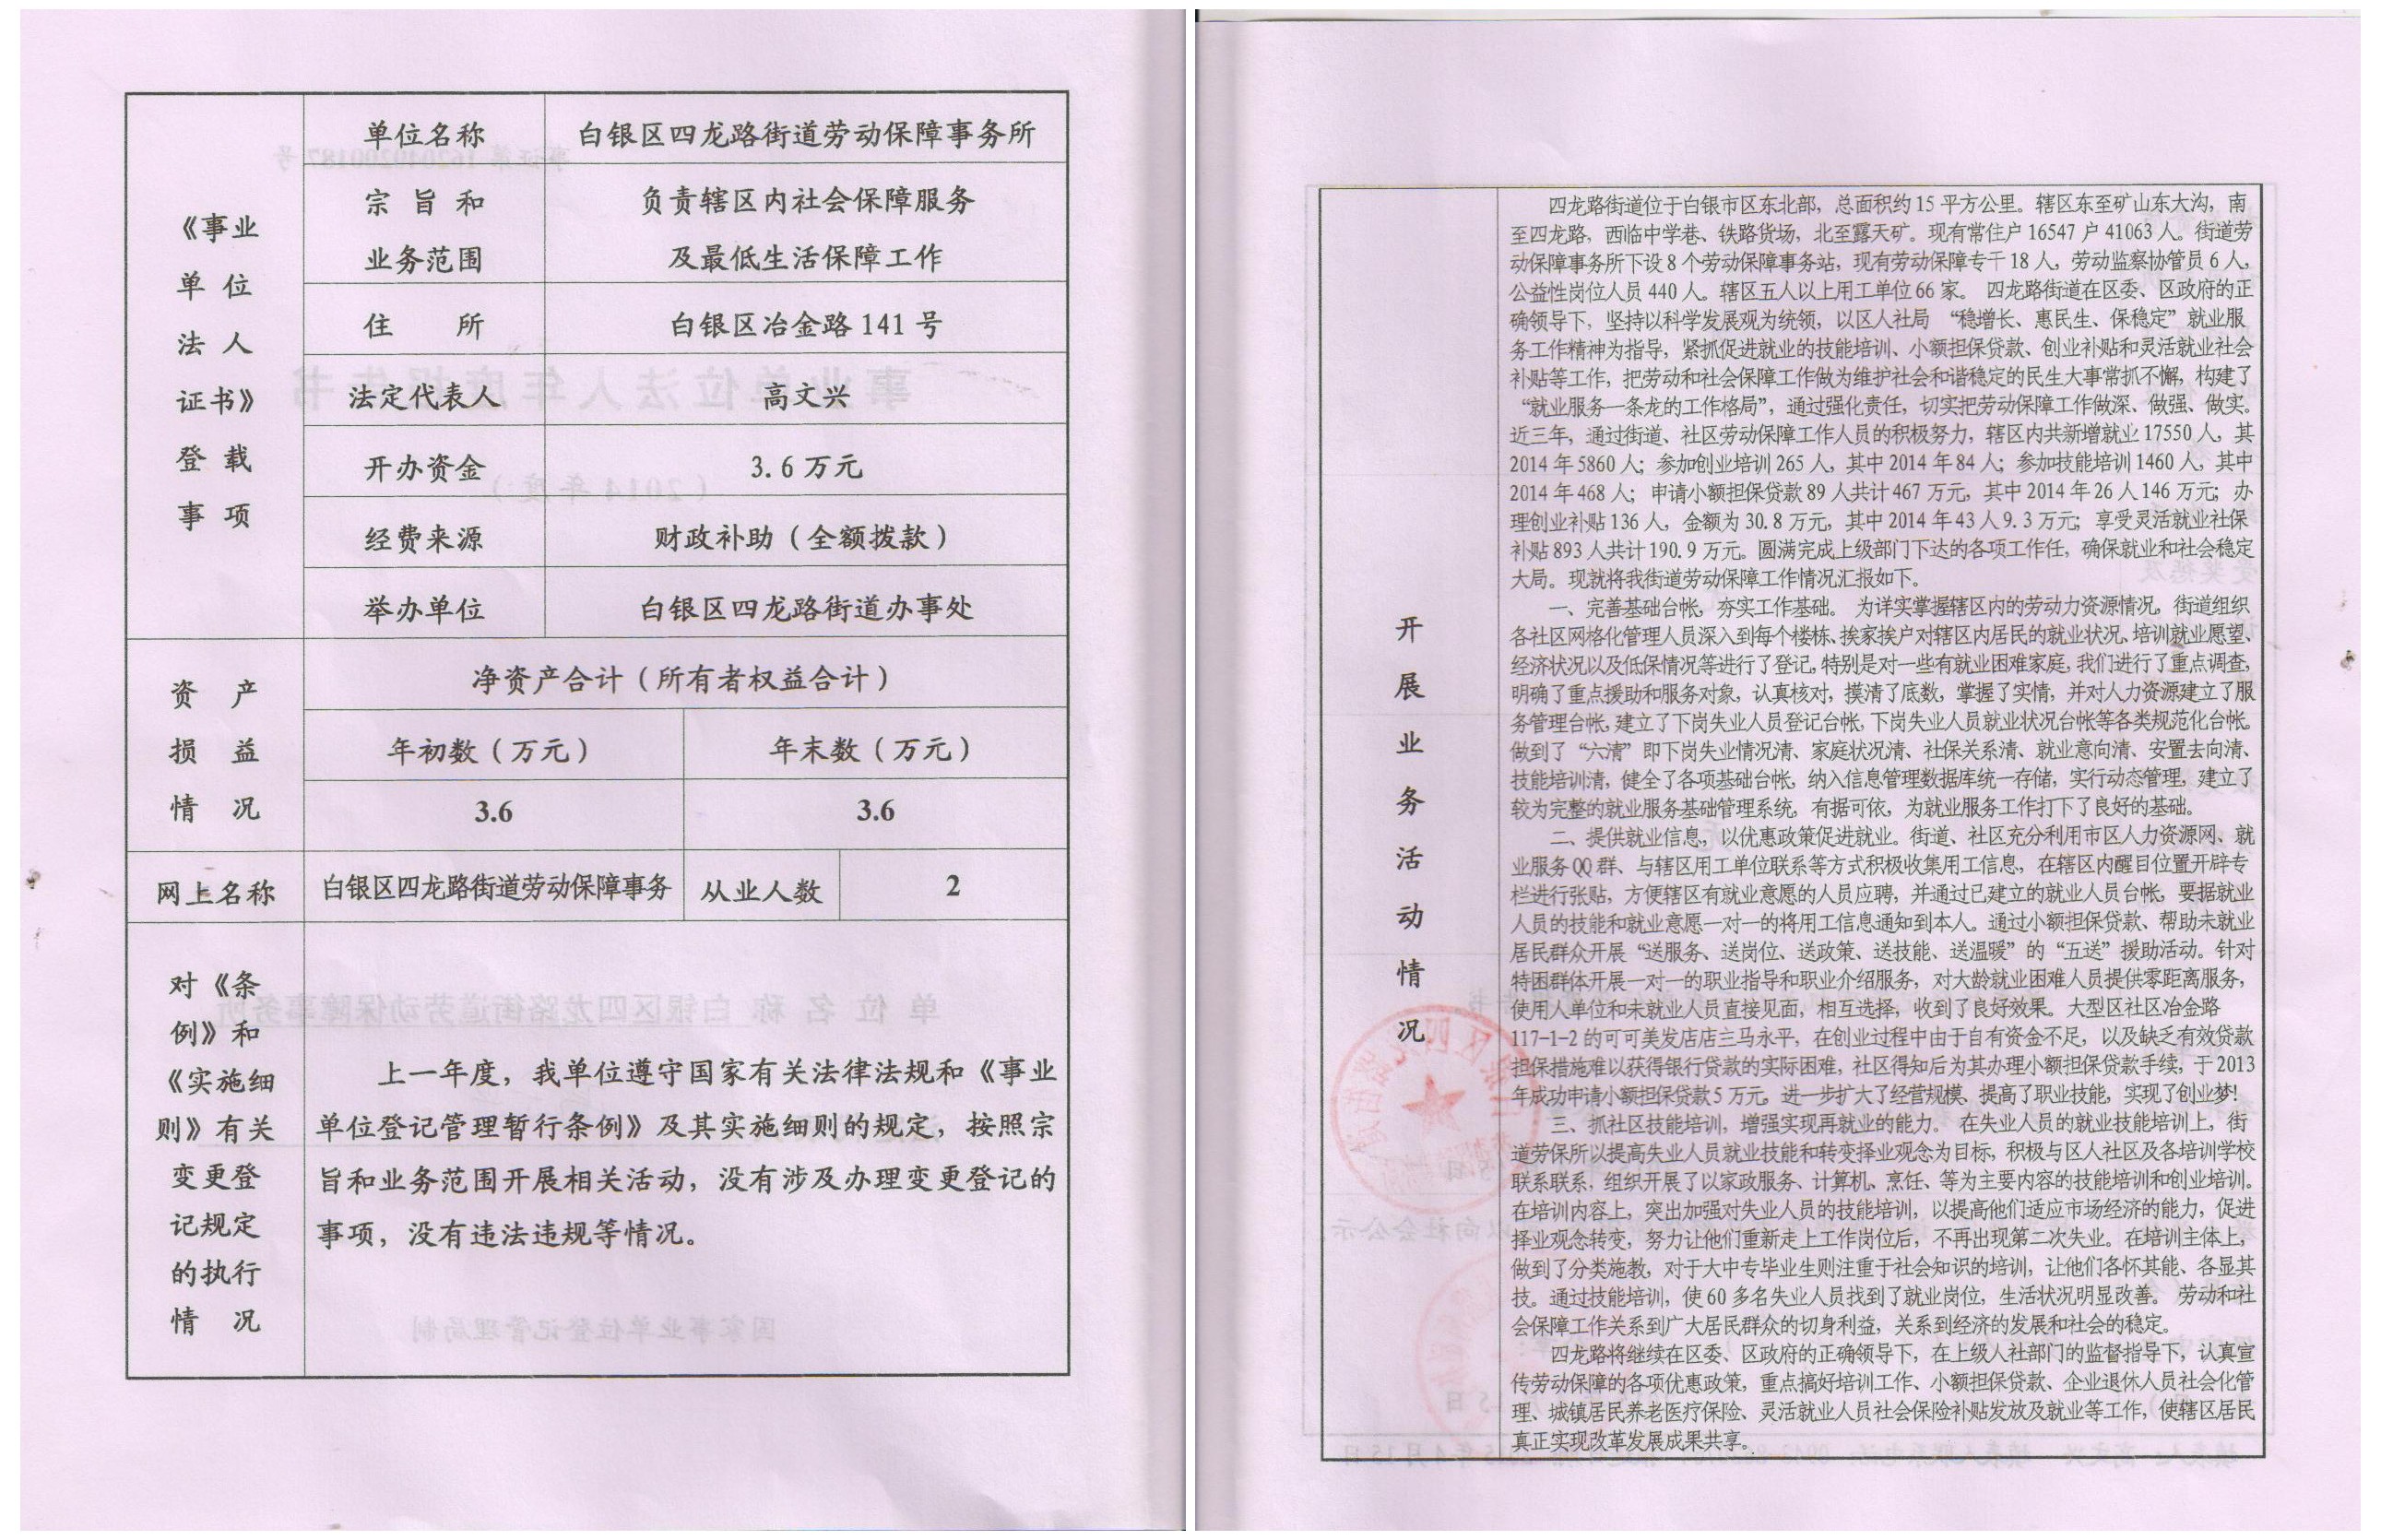 《事业
单 位
法 人
证书》
登 载
事 项
单位名称
白银区四龙路街道劳动保障事务所
宗 旨 和
业务范围
负责辖区内社会保障服务
及最低生活保障工作
住 所
白银区冶金路 141 号
法定代表人
高文兴
开办资金
3.6 万元
经费来源
财政补助（全额拨款）
举办单位
白银区四龙路街道办事处
资 产
损 益
情 况
净资产合计（所有者权益合计）
年初数（万元）
年末数（万元）
3.6
3.6
网上名称
白银区四龙路街道劳动保障事务
从业人数
2
对《条
例》和
《实施细
则》有关
变更登
记规定
的执行
情 况
上一年度，我单位遵守国家有关法律法规和《事业
单位登记管理暂行条例》及其实施细则的规定，按照宗
旨和业务范围开展相关活动，没有涉及办理变更登记的
事项，没有违法违规等情况。
开
展
业
务
活
动
情
况
四龙路街道位于白银市区东北部，总面积约 15 平方公里。辖区东至矿山东大沟，南
至四龙路，西临中学巷、铁路货场，北至露天矿。现有常住户 16547 户 41063 人。街道劳
动保障事务所下设 8 个劳动保障事务站，现有劳动保障专干 18 人，劳动监察协管员 6 人，
公益性岗位人员 440 人。辖区五人以上用工单位 66 家。 四龙路街道在区委、区政府的正
确领导下，坚持以科学发展观为统领，以区人社局 “稳增长、惠民生、保稳定”就业服
务工作精神为指导，紧抓促进就业的技能培训、小额担保贷款、创业补贴和灵活就业社会
补贴等工作，把劳动和社会保障工作做为维护社会和谐稳定的民生大事常抓不懈，构建了
“就业服务一条龙的工作格局”，通过强化责任，切实把劳动保障工作做深、做强、做实。
近三年，通过街道、社区劳动保障工作人员的积极努力，辖区内共新增就业 17550 人，其
2014 年 5860 人；参加创业培训 265 人，其中 2014 年 84 人；参加技能培训 1460 人，其中
2014 年 468 人； 申请小额担保贷款 89 人共计 467 万元，其中 2014 年 26 人 146 万元；办
理创业补贴 136 人，金额为 30.8 万元，其中 2014 年 43 人 9.3 万元；享受灵活就业社保
补贴 893 人共计 190.9 万元。圆满完成上级部门下达的各项工作任，确保就业和社会稳定
大局。现就将我街道劳动保障工作情况汇报如下。
一、完善基础台帐，夯实工作基础。 为详实掌握辖区内的劳动力资源情况，街道组织
各社区网格化管理人员深入到每个楼栋、挨家挨户对辖区内居民的就业状况、培训就业愿望、
经济状况以及低保情况等进行了登记，特别是对一些有就业困难家庭，我们进行了重点调查，
明确了重点援助和服务对象，认真核对，摸清了底数，掌握了实情，并对人力资源建立了服
务管理台帐，建立了下岗失业人员登记台帐，下岗失业人员就业状况台帐等各类规范化台帐。
做到了“六清”即下岗失业情况清、家庭状况清、社保关系清、就业意向清、安置去向清、
技能培训清，健全了各项基础台帐，纳入信息管理数据库统一存储，实行动态管理，建立了
较为完整的就业服务基础管理系统，有据可依，为就业服务工作打下了良好的基础。
二、提供就业信息，以优惠政策促进就业。街道、社区充分利用市区人力资源网、就
业服务 QQ 群、与辖区用工单位联系等方式积极收集用工信息，在辖区内醒目位置开辟专
栏进行张贴，方便辖区有就业意愿的人员应聘，并通过已建立的就业人员台帐，要据就业
人员的技能和就业意愿一对一的将用工信息通知到本人。通过小额担保贷款、帮助未就业
居民群众开展“送服务、送岗位、送政策、送技能、送温暖”的“五送”援助活动。针对
特困群体开展一对一的职业指导和职业介绍服务，对大龄就业困难人员提供零距离服务，
使用人单位和未就业人员直接见面，相互选择，收到了良好效果。大型区社区冶金路
117-1-2 的可可美发店店主马永平，在创业过程中由于自有资金不足，以及缺乏有效贷款
担保措施难以获得银行贷款的实际困难，社区得知后为其办理小额担保贷款手续，于 2013
年成功申请小额担保贷款 5 万元，进一步扩大了经营规模、提高了职业技能，实现了创业梦！
三、抓社区技能培训，增强实现再就业的能力。 在失业人员的就业技能培训上，街
道劳保所以提高失业人员就业技能和转变择业观念为目标，积极与区人社区及各培训学校
联系联系，组织开展了以家政服务、计算机、烹饪、等为主要内容的技能培训和创业培训。
在培训内容上，突出加强对失业人员的技能培训，以提高他们适应市场经济的能力，促进
择业观念转变，努力让他们重新走上工作岗位后，不再出现第二次失业。在培训主体上，
做到了分类施教，对于大中专毕业生则注重于社会知识的培训，让他们各怀其能、各显其
技。通过技能培训，使 60 多名失业人员找到了就业岗位，生活状况明显改善。 劳动和社
会保障工作关系到广大居民群众的切身利益，关系到经济的发展和社会的稳定。
四龙路将继续在区委、区政府的正确领导下，在上级人社部门的监督指导下，认真宣
传劳动保障的各项优惠政策，重点搞好培训工作、小额担保贷款、企业退休人员社会化管
理、城镇居民养老医疗保险、灵活就业人员社会保险补贴发放及就业等工作，使辖区居民
真正实现改革发展成果共享。